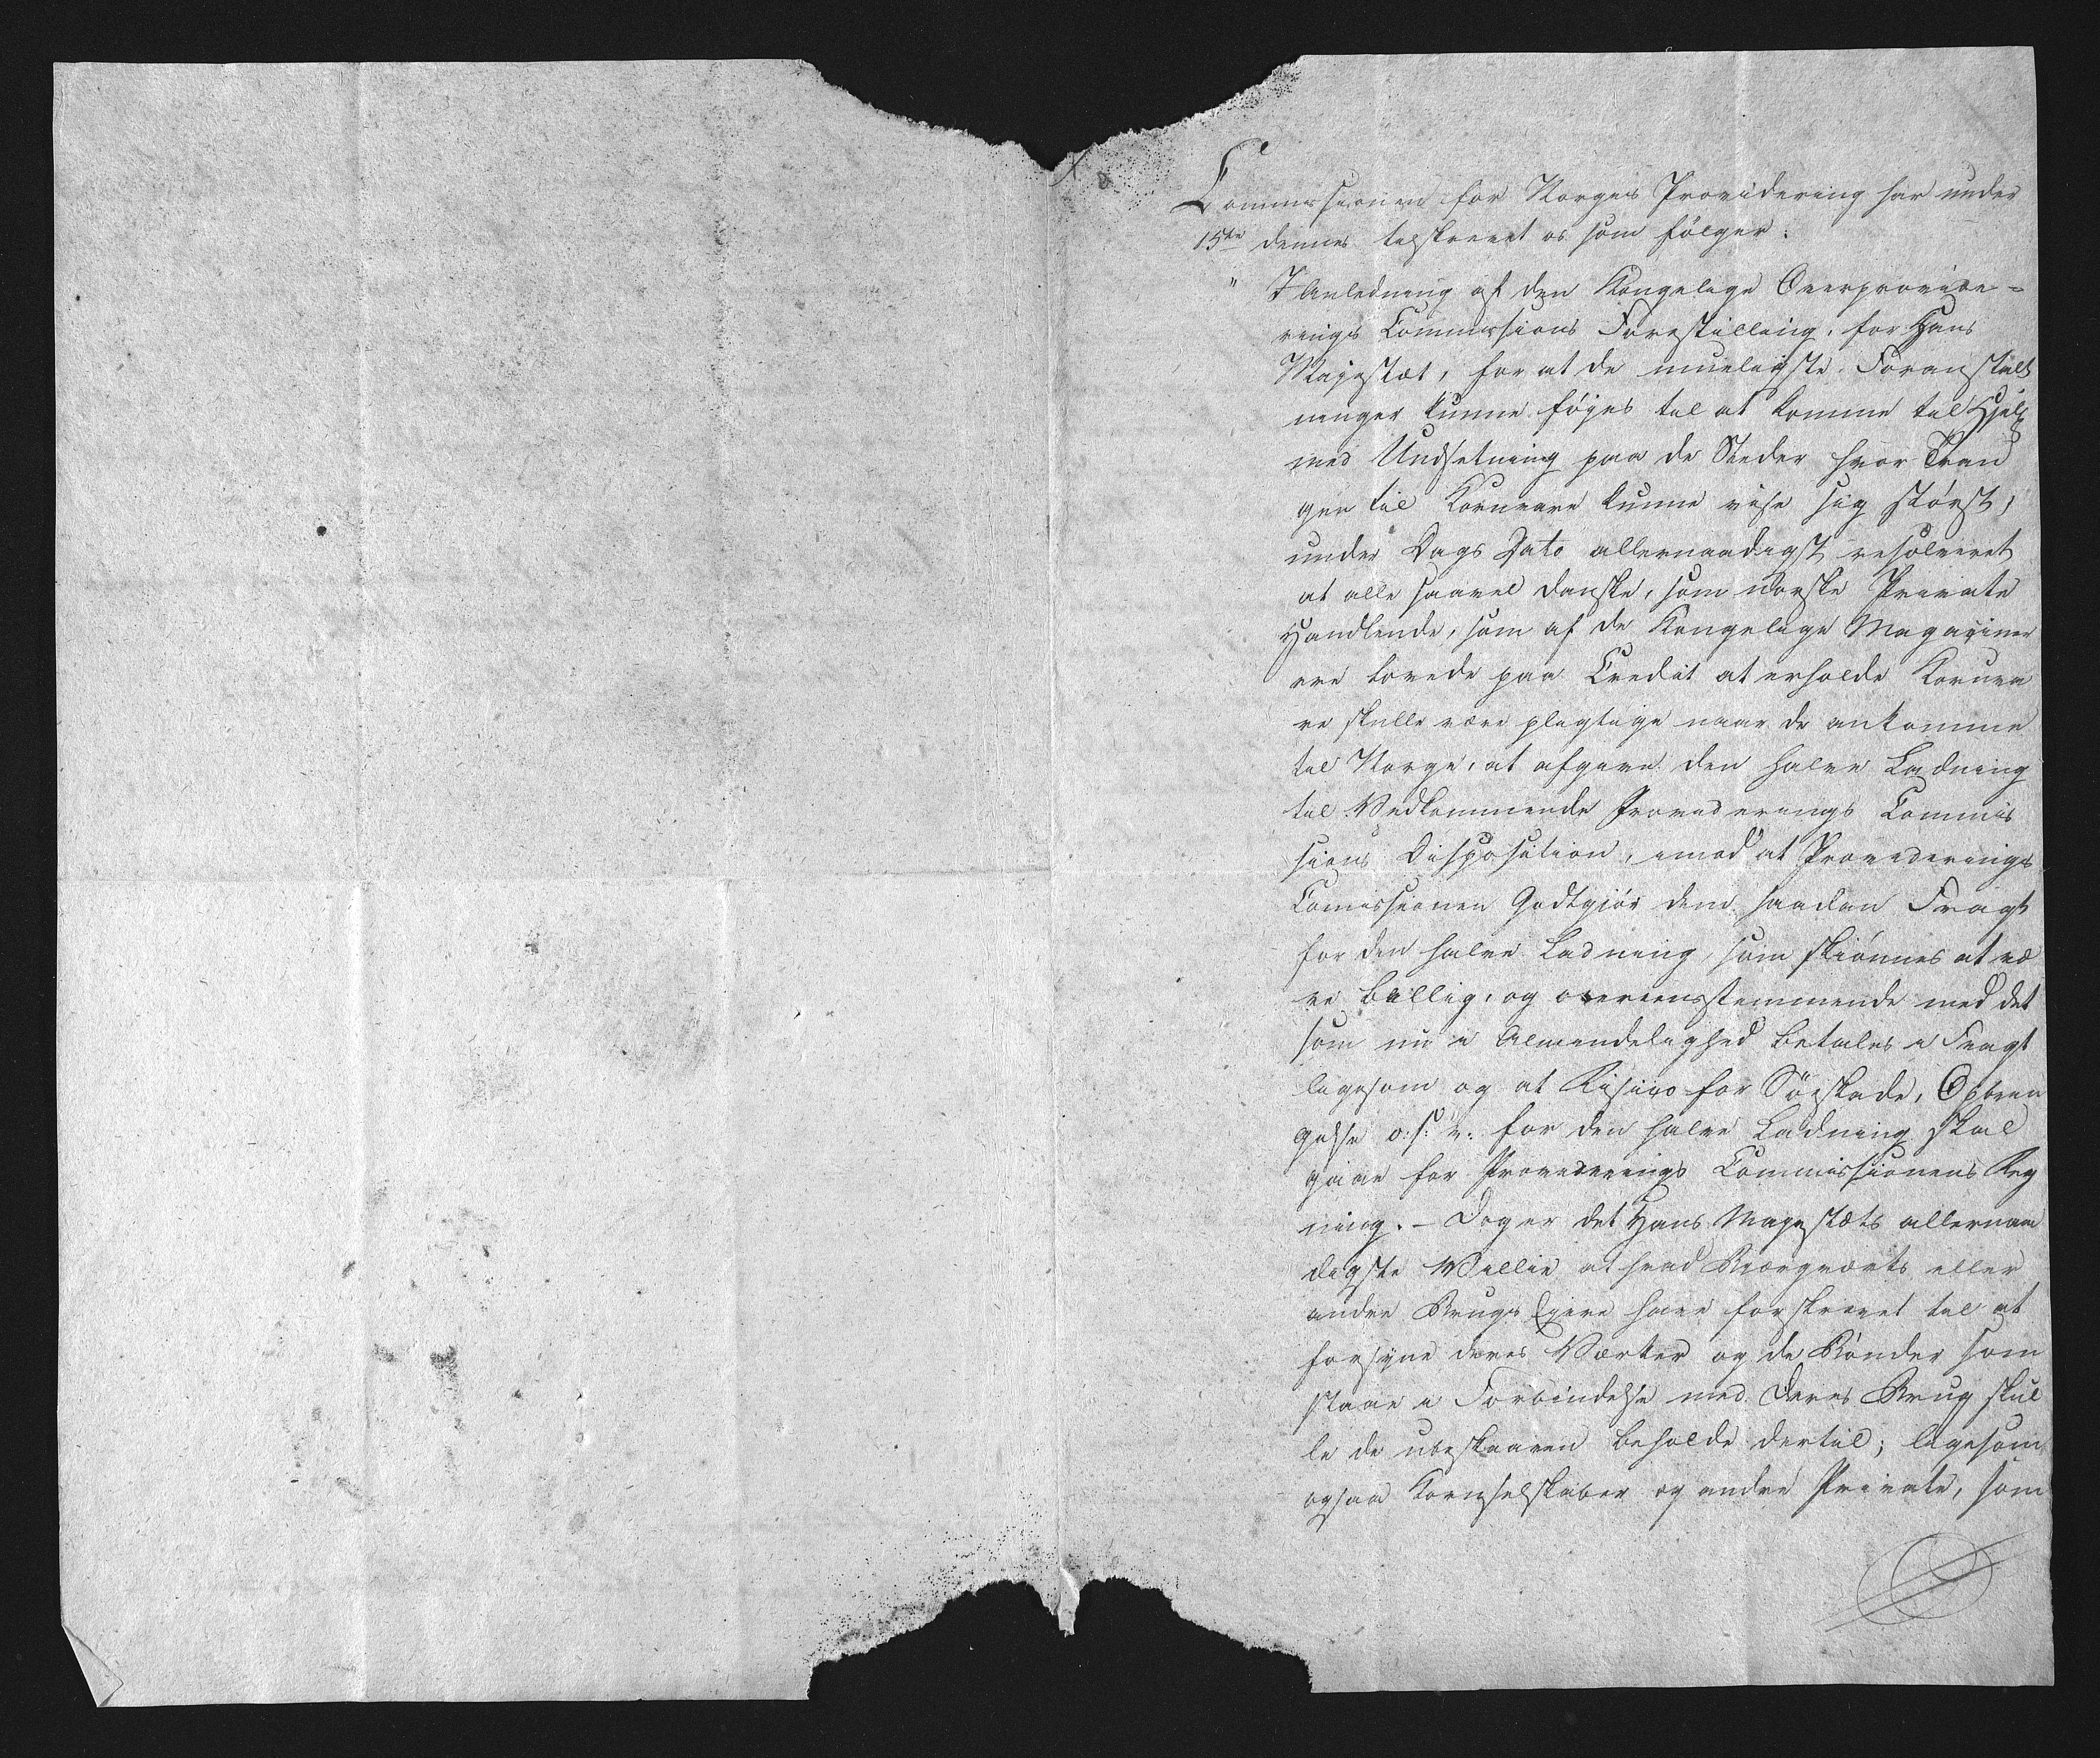 Commissionen for Norges Providering har under
15de dennes tilskrevet os som følger:
" I Anledning af den Kongelige Overprovide-
rings Commissions Forestilling, for Hans
Majestæt, for at de mueligste Foranstalt
ninger kunne føyes til at komme til Hjelp
med Undsetning paa de Steder hvor Tran
gen til Kornvare kunne vise sig størst,
under Dags Dato allernaadigst resolveret
at alle saavel danske, som norske Private
Handlende, som af de Kongelige Magaziner
ere lovede paa Credit at erholde Kornva
re skulle være pligtige naar de ankomme
til Norge, at afgive den halve Ladning
til Vedkommende Providerings Commis
sions Disposition, imod at Providerings
Comissionen Godtgiør dem saadan Fragt
for den halve Ladning, som skiønnes at væ
re billig, og overeensstemmende med det
som nu i Almindelighed betales i Fragt
ligesom og at Risico for Søeskade, Opbrin
gelse o: s: v: for den halve Ladning skal
gaae for Providerings Commissionens Reg
ning. - Dog er det Hans Majestæts allernaa
digste Villie at hvad Biergværks eller
andre Brugs Eyere have forskrevet til at
forsyne deres Værker og de Bønder som
staae i Forbindelse med deres Brug skul
le de ubeskaaren beholde dertil; ligesom
ogsaa Kornselskaber og andre Private, som